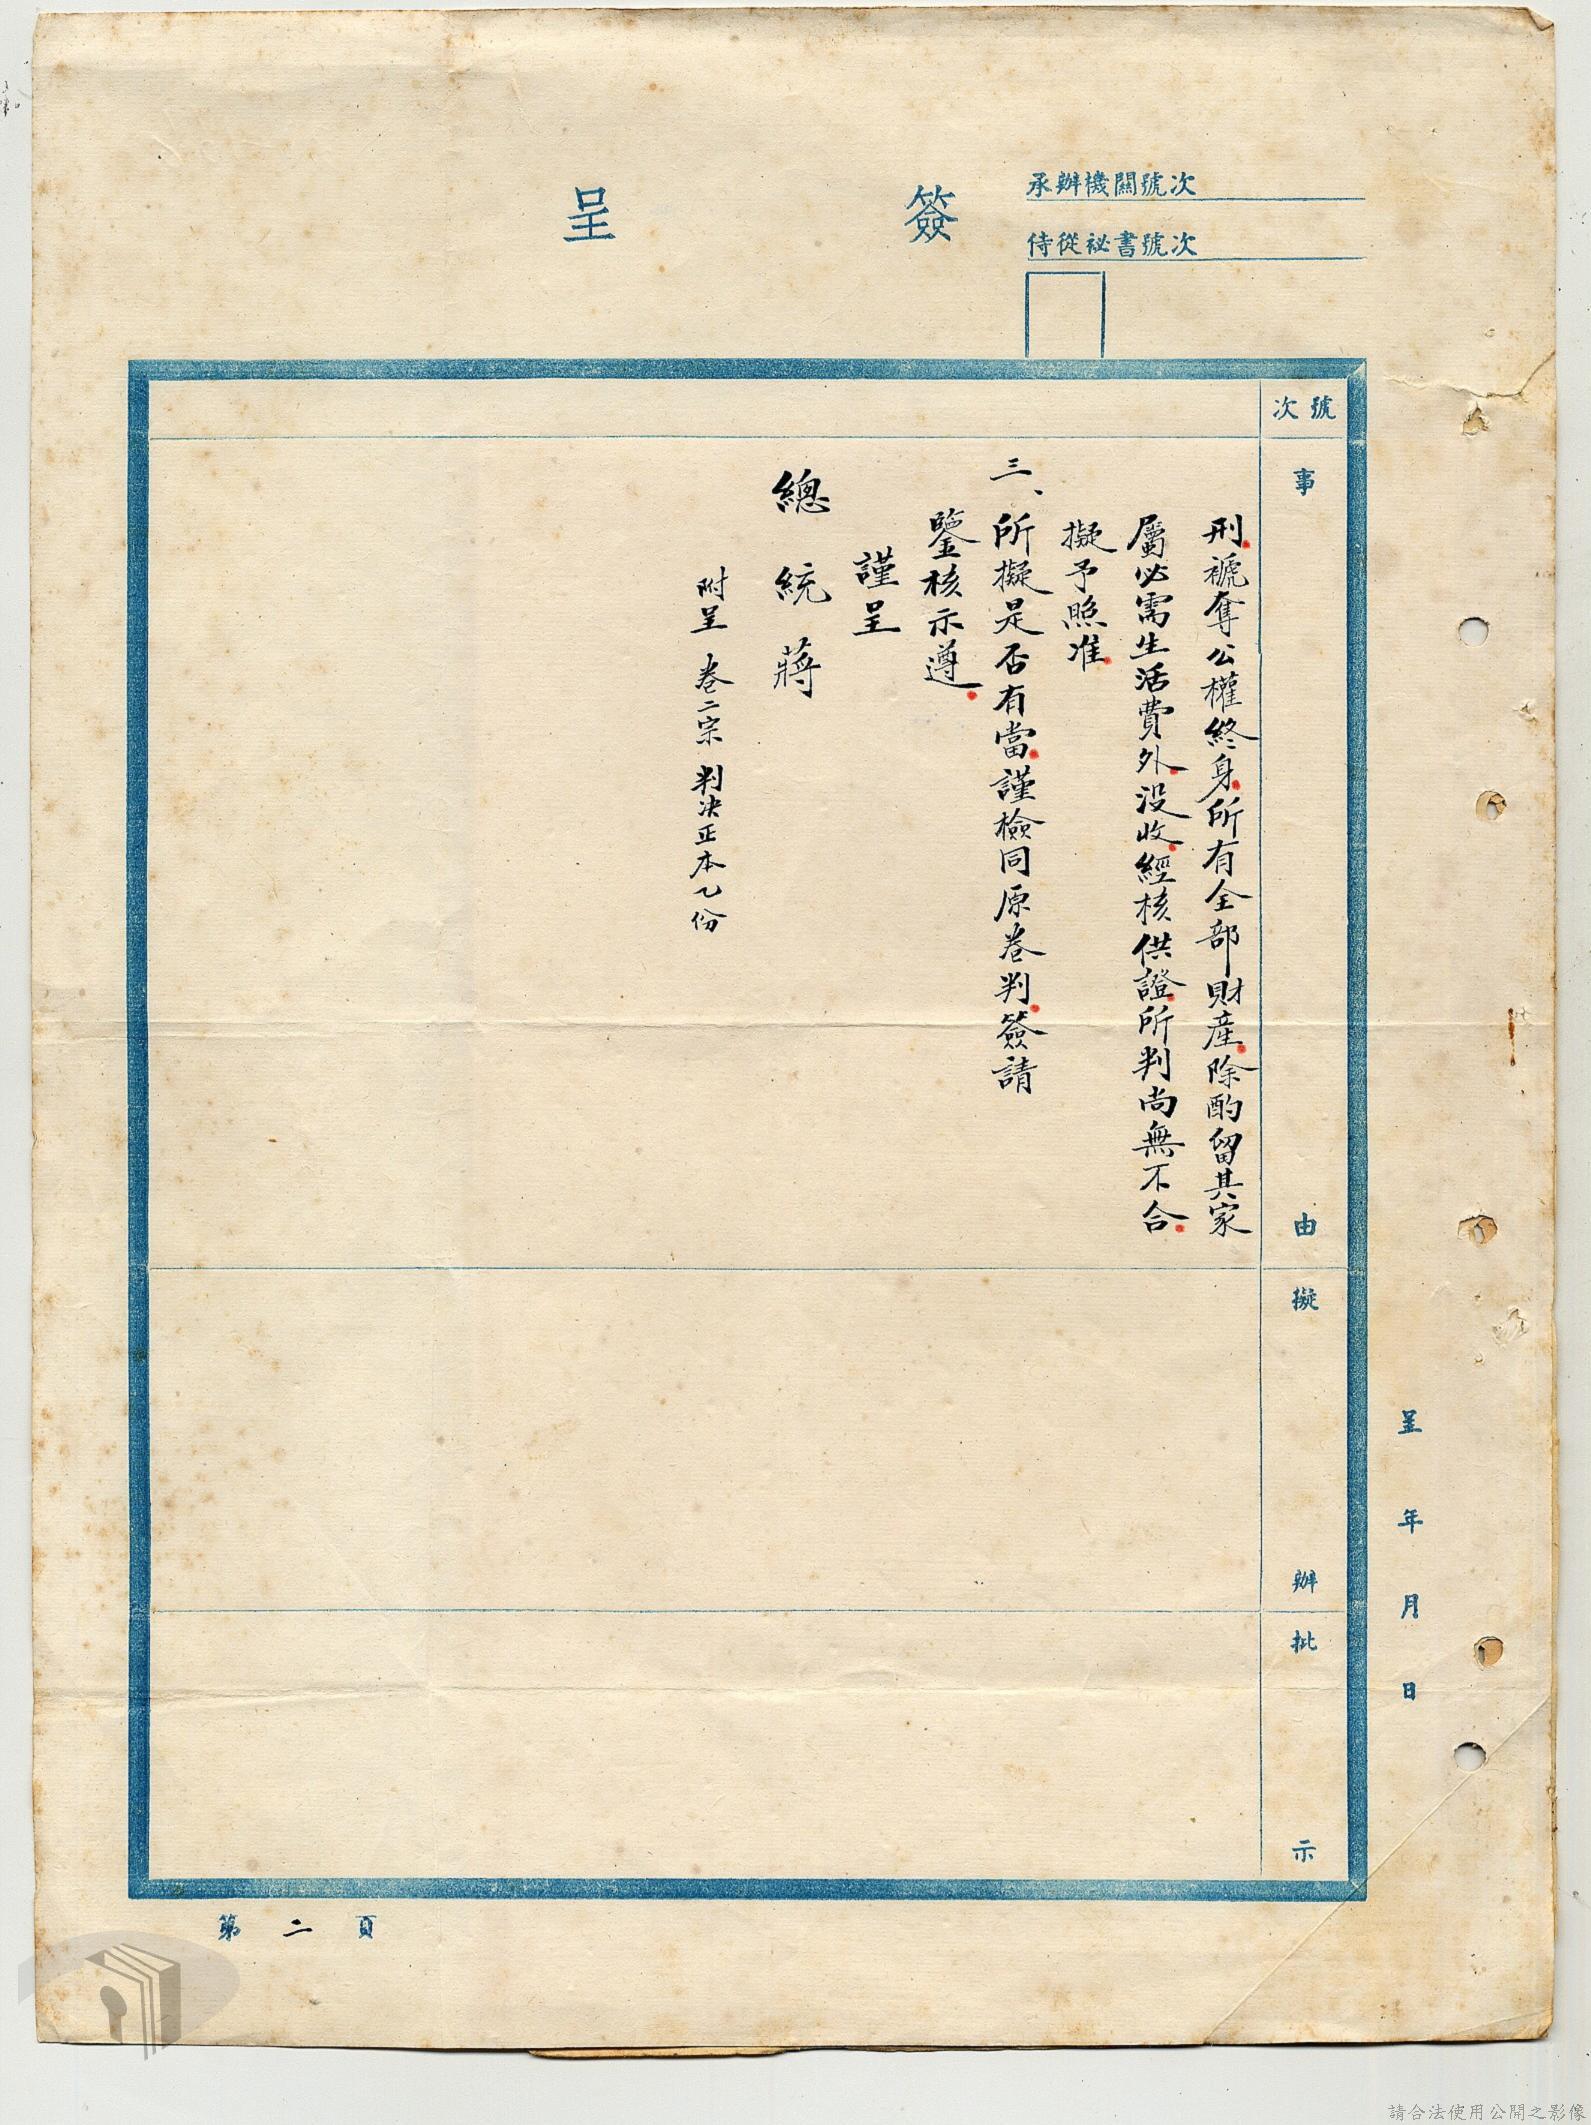 簽呈
承辦機關號次
侍從祕書號次
號次
事由
擬辦
批示
呈 年 月 日
刑褫奪公權終身所有全部財產除酌留其家
屬必需生活費外沒收經核供證所判尚無不合
擬予照准
三、所擬是否有當謹檢同原卷判簽請
鑒核示遵
謹呈
總統蔣
附呈 卷二宗 判決正本乙份
第二頁
請合法使用公開之影像